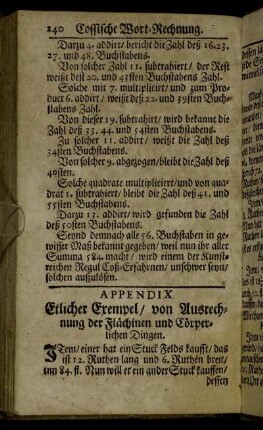 240 Cossische Wort-Rechnung.
Darzu 4. addirt / bericht die Zahl deß 16. 23.
27. und 48. Buchstabens.
Von solcher Zahl 11. subtrahirt / der Rest
weißt deß 20. und 43sten Buchstabens Zahl.
Solche mit 7. multiplicirt / und zum Pro-
duct 6. addirt / weißt deß 22. und 39sten Buch-
stabens Zahl.
Von dieser 19. subtrahirt / wird bekannt die
Zahl deß 33. 44. und 54sten Buchstabens.
Zu solcher 11. addirt / weißt die Zahl deß
34sten Buchstabens.
Von solcher 9. abgezogen / bleibt die Zahl deß
40sten.
Solche quadrate multipliciert / und von qua-
drat 1. subtrahiert / bleibt die Zahl deß 41. und
55sten Buchstabens.
Darzu 13. addirt / wird gefunden die Zahl
deß 50sten Buchstabens.
Seynd demnach alle 56. Buchstaben in ge-
wisser Maß bekannt gegeben / weil nun ihr aller
Summa 584. macht / wird einem der Kunst-
reichen Regul Coß-Erfahrnen / unschwer seyn /
solchen aufzulösen.
APPENDIX
Etlicher Exempel / von Ausrech-
nung der Flächinen und Cörper-
lichen Dingen.
ITem / einer hat ein Stuck Felds kaufft / das
ist 12. Ruthen lang und 6. Ruthen breit /
um 84. fl. Nun will er ein ander Stuck kauffen /
dessen